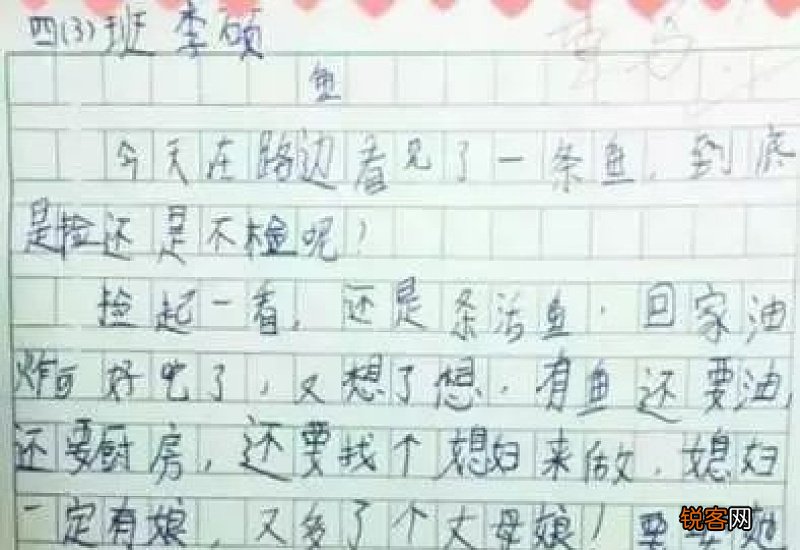 四(3)班 李硕
鱼
今天在路边看见了一条鱼，到底
是捡还是不检呢！
捡起一看，还是条活鱼，回家油
炸可好吃了，又想了想，有鱼还要油，
还要厨房，还要找个媳妇来做，媳妇
一定有娘，又多了个丈母娘！要要她
锐客网